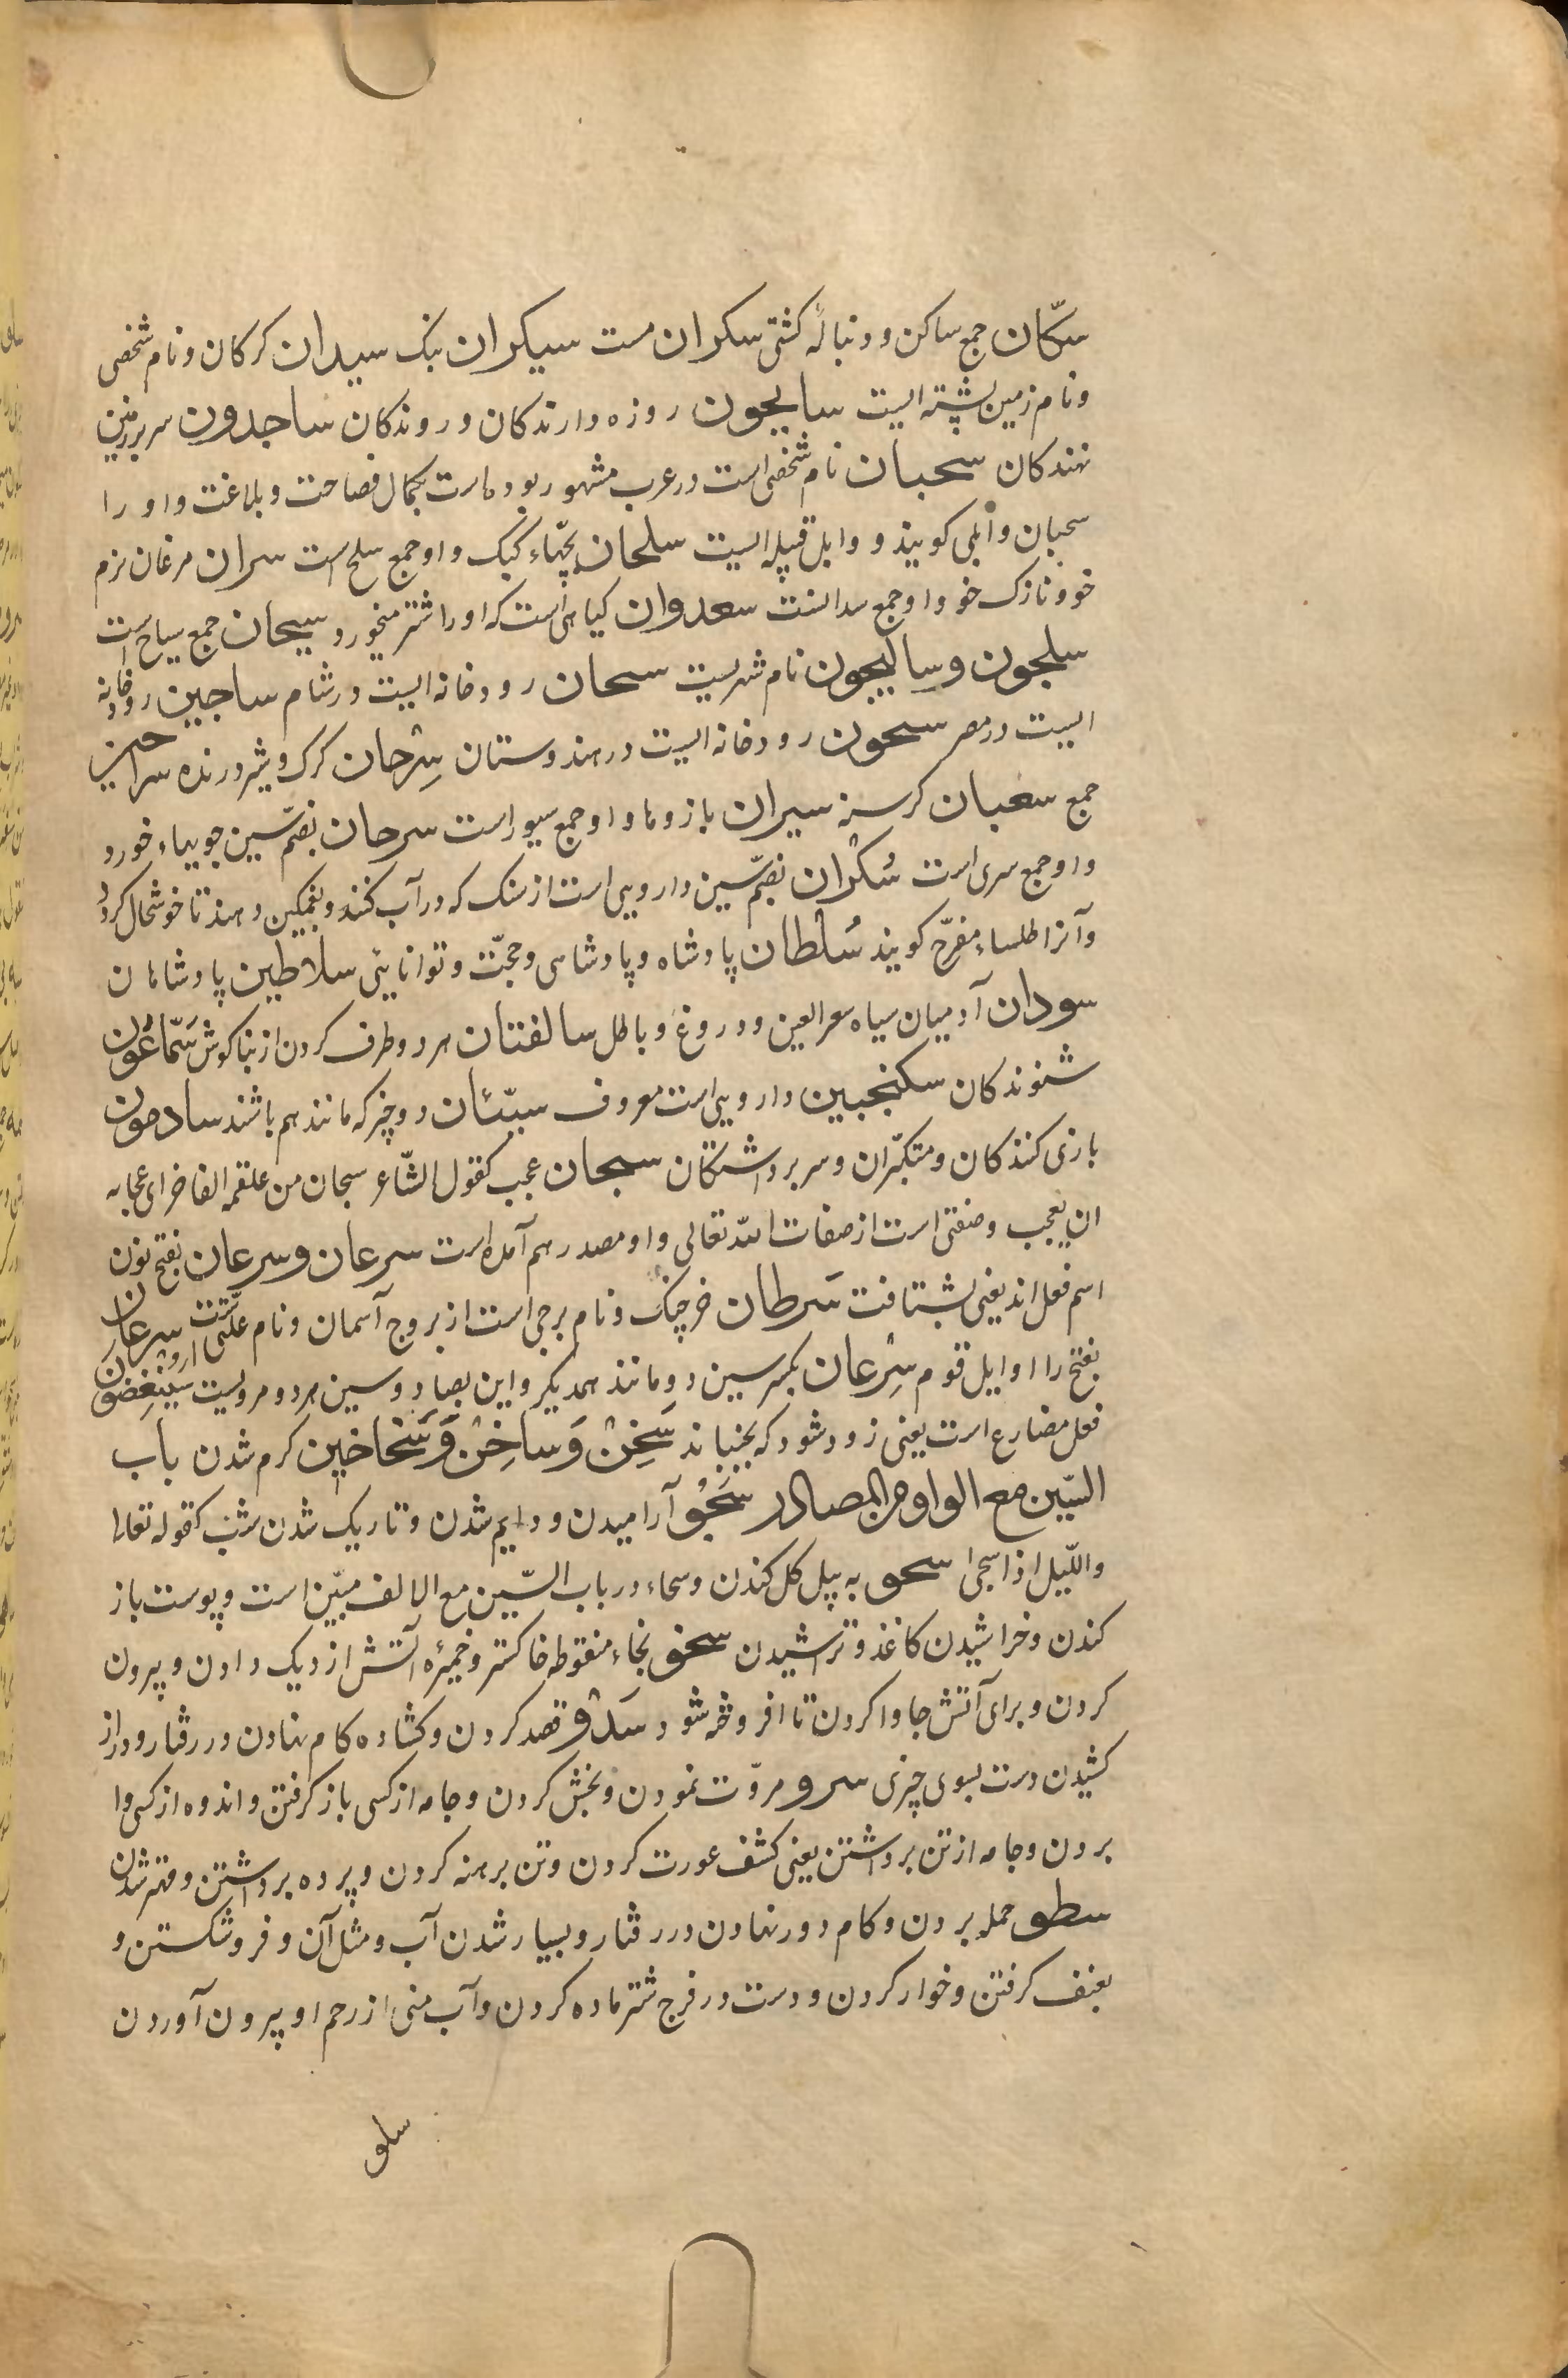 سکّان جمع ساکن و دنبالهٔ کشتی سکران مست سیکران بنک سیدان کرکان و نام شخصی
و نام زمین پشته ایست سایحون روزه دارندکان و روندکان ساجدون سر بر زمین
نهندکان سحبان نام شخصی است در عرب مشهور بوده است بکمال فصاحت و بلاغت و او را
سحبان وائلی کویند و وابل قبیله ایست سلحان بچّهاء کبک و او جمع سلح است سران مرغان نرم
خو و نازک خو و او جمع سدانست سعدوان کیاهی است که او را شتر میخورد سیحان جمع سیاح است
سلجون و سالیجون نام شهریست سحان رودخانه ایست در شام ساجین رودخانه
ایست در مصر سیحون رودخانه ایست در هندوستان سِرْحان کرک و شیر درنده سراحین
جمع سغبان کرسنه سیران بازوها و او جمع سیور است سرحان بضمّ سین جویهاء خورد
و او جمع سری است سُکْران بضمّ سین دارویی است از سنک که در آب کنند و بغمکین دهند تا خوشحال کردد
و آنرا طلساء مفرّح کویند سُلْطان پادشاه و پادشاهی و حجّت و توانایی سلاطین پادشاهان
سودان آدمیان سیاه سعرالعین و دروغ و باطل سالفتان هر دو طرف کردن از بناکوش سَمّاعُون
شنوندکان سکنجبین دارویی است معروف سیّئان دو چیز که مانند هم باشند سادمون
بازی کنندکان و متکبّران و سر برداشتکان سبحان عجب کقول الشّاعر سبحان من علقمه الفاخر ای عجبا به
ان یعجب و صفتی است از صفات اللّه تعالی و او مصدر هم آمده است سرعان و سرعان بفتح نون
اسم فعل اند یعنی بشتافت سَرطان خرچنک و نام برجی است از بروج آسمان و نام علّتی است سرعان
بفتح را اوایل قوم سِرْعان بکسر سین دو مانند همدیکر و این بصاد و سین هر دو مرویست سَیُنْغِضُونَ
فعل مضارع است یعنی زود شود که بجنباند سَخِنْ وَ ساخِنْ وَ سَخاخین کرم شدن باب
السّین مع الواو من المصادر سَجْو آرامیدن و دایم شدن و تاریک شدن شب کقوله تعالا
واللّیل اذا سجی سحو به بیل کل کندن و سحاء در باب السّین مع الالف مبیّن است و پوست باز
کندن و خراشیدن کاغذ و تراشیدن سخو بخاء منقوطه خاکستر و خمیرهٔ آتش از دیک دادن و بیرون
کردن و برای آتش جا وا کردن تا افروخته شود سَدْو قصد کردن و کشاده کام نهادن در رفتار و دراز
کشیدن دست بسوی چیزی سرو مروّت نمودن و بخش کردن و جامه از کسی باز کرفتن و اندوه از کسی وا
بردن و جامه از تن برداشتن یعنی کشف عورت کردن و تن برهنه کردن و پرده برداشتن و مهتر شدن
سطو حمله بردن و کام دور نهادن در رفتار و بسیار شدن آب و مثل آن و فرو شکستن و
بعنف کرفتن و خوار کردن و دست در فرج شتر ماده کردن و آب منی از رحم او بیرون آوردن
سلو